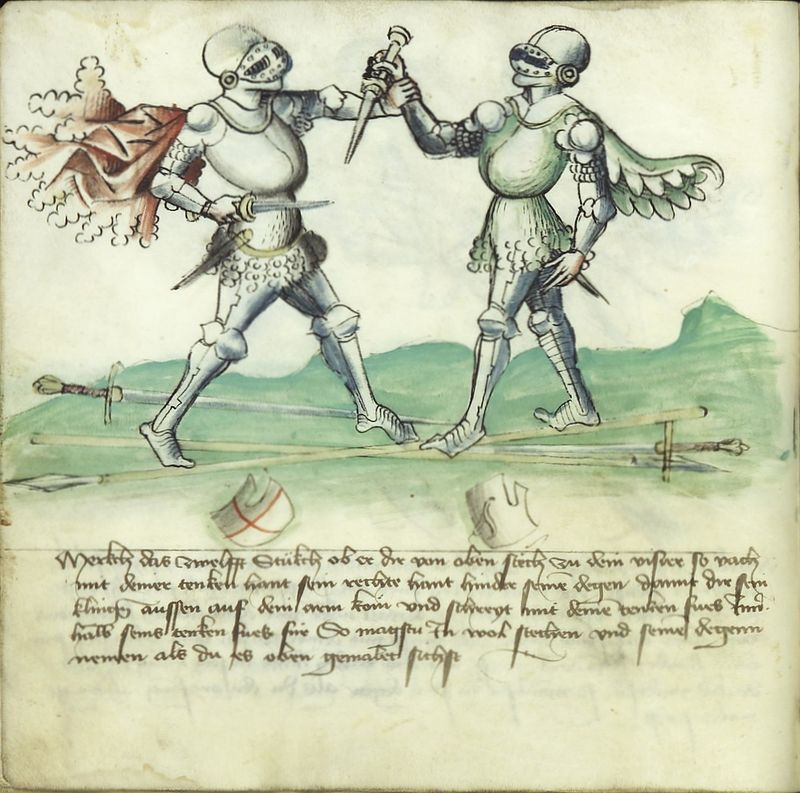 Merckh das zwelfft Stückch ob er dir von oben stech zu dem visier so vach
mit deiner tenken hant sein rechte hant hinder seinē degen damit dir sein
kling aussen auf dem arm kom vnd schreyt mit deinē tenken fues
halb seins tenken fues für So magstu in wol stechen vnd seinē degenn
nemen als du es oben gemalet sichst